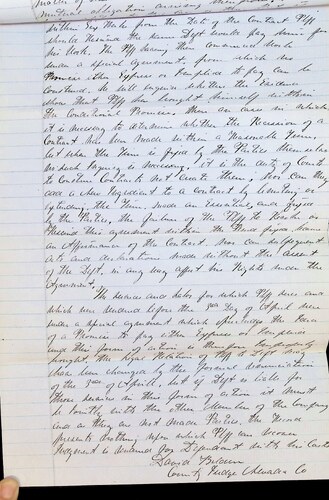 mutual allegation arising
within six weeks from the Date of the Contract Plff
should Rescind the same Deft would pay him for
his work. The Plff having then commenced work
under a special agreement from which no
Promise either Express or Implied to pay can be
Construed. We will inquire whether the Evidence
shows that Plff has brought himself within
the Conditional Promise. Then in case in which
it is necessary to determine whether the Recession of a
Contract has been made within a reasonable time,
but when the time is fixed by the Parties themselves
no such Inquiry is necessary. it is the duty of Courts
to Construe Contracts not create them, nor can they
add a new Ingredient to a Contract by limiting or
extending the Time, made an Essential and fixed
by the Parties, the failure of the Plff to
Rescind this agreement within the time fixed was
an Affirmance of the Contract. Nor can subsequent
acts and declarations made without the assent
of the Deft. in any way affect his Rights under the
Agreement.
The services and sales for which Plff sues and
which were rendered before the 3rd Day of April were
under a special agreement which precludes the Idea
of a Promise to pay either Expressed or Implied
and this form of action is therefore Improperly
brought. The Legal Relation of Plff to Deft may
have been changed by the formal renunciation
of the 3rd of April, but if Deft is liable for
those services in this form of action it must
be jointly with the other Members of the Company
and as they are not made Parties, the Record
presents nothing upon which Plff can recover
Judgment is rendered for Defendant with his Costs
David
County Judge Alameda Co